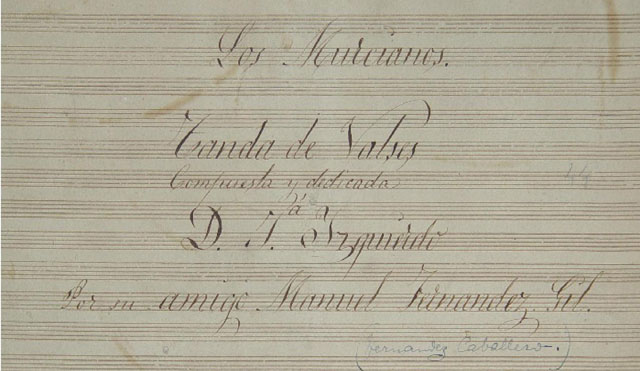 Los Murcianos.
Tanda de Valses
Compuesta y dedicada
á
D. A. Yzquierdo
Por su amigo Manuel Fernandez. Gil.
(Fernandez Caballero.)
44